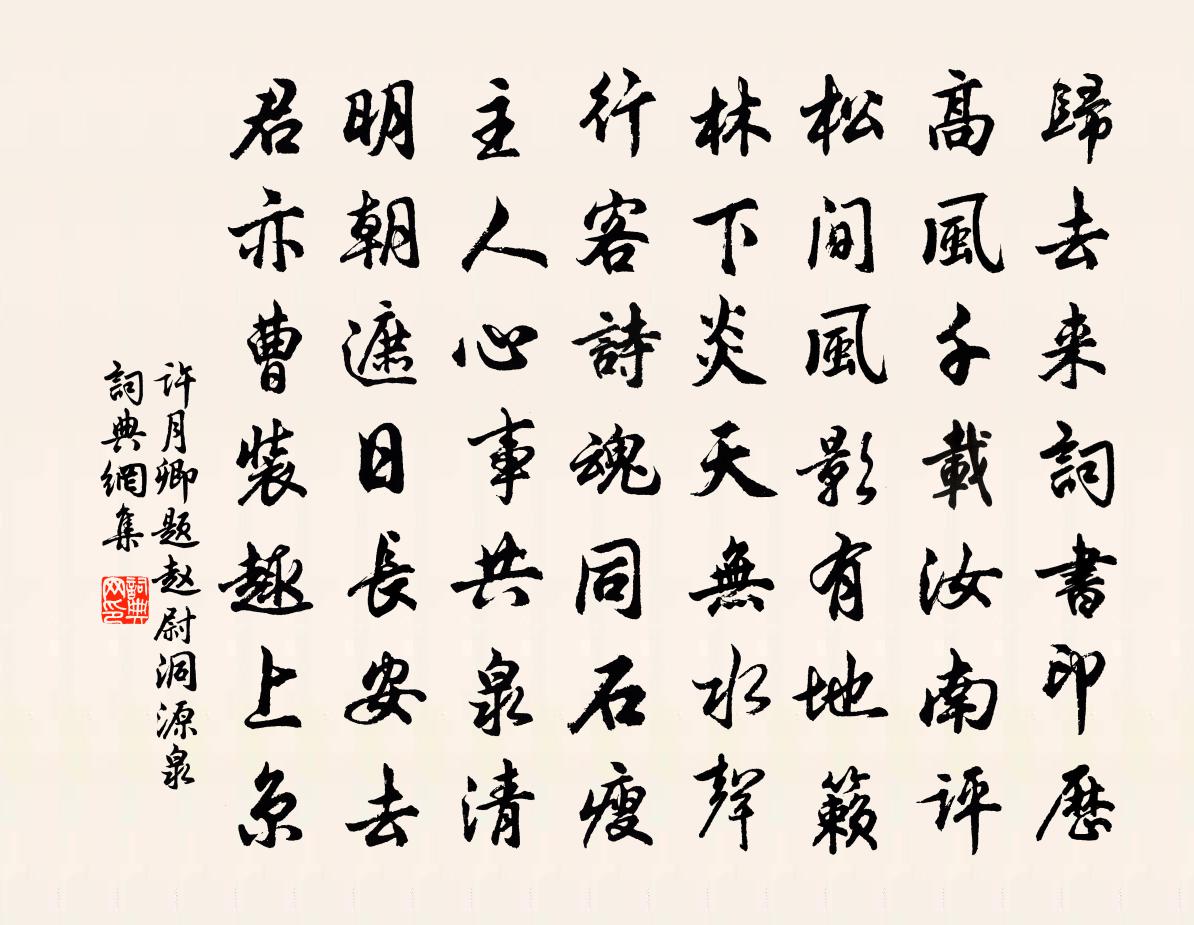 歸去来詞書印歷
高風千載汝南評
松間風影有地籟
林下炎天無水聲
行客詩魂同石瘦
主人心事共泉清
明朝遮日長安去
君亦曹裝趣上京
许月卿题赵尉洞源泉
詞典網集
詞典网印